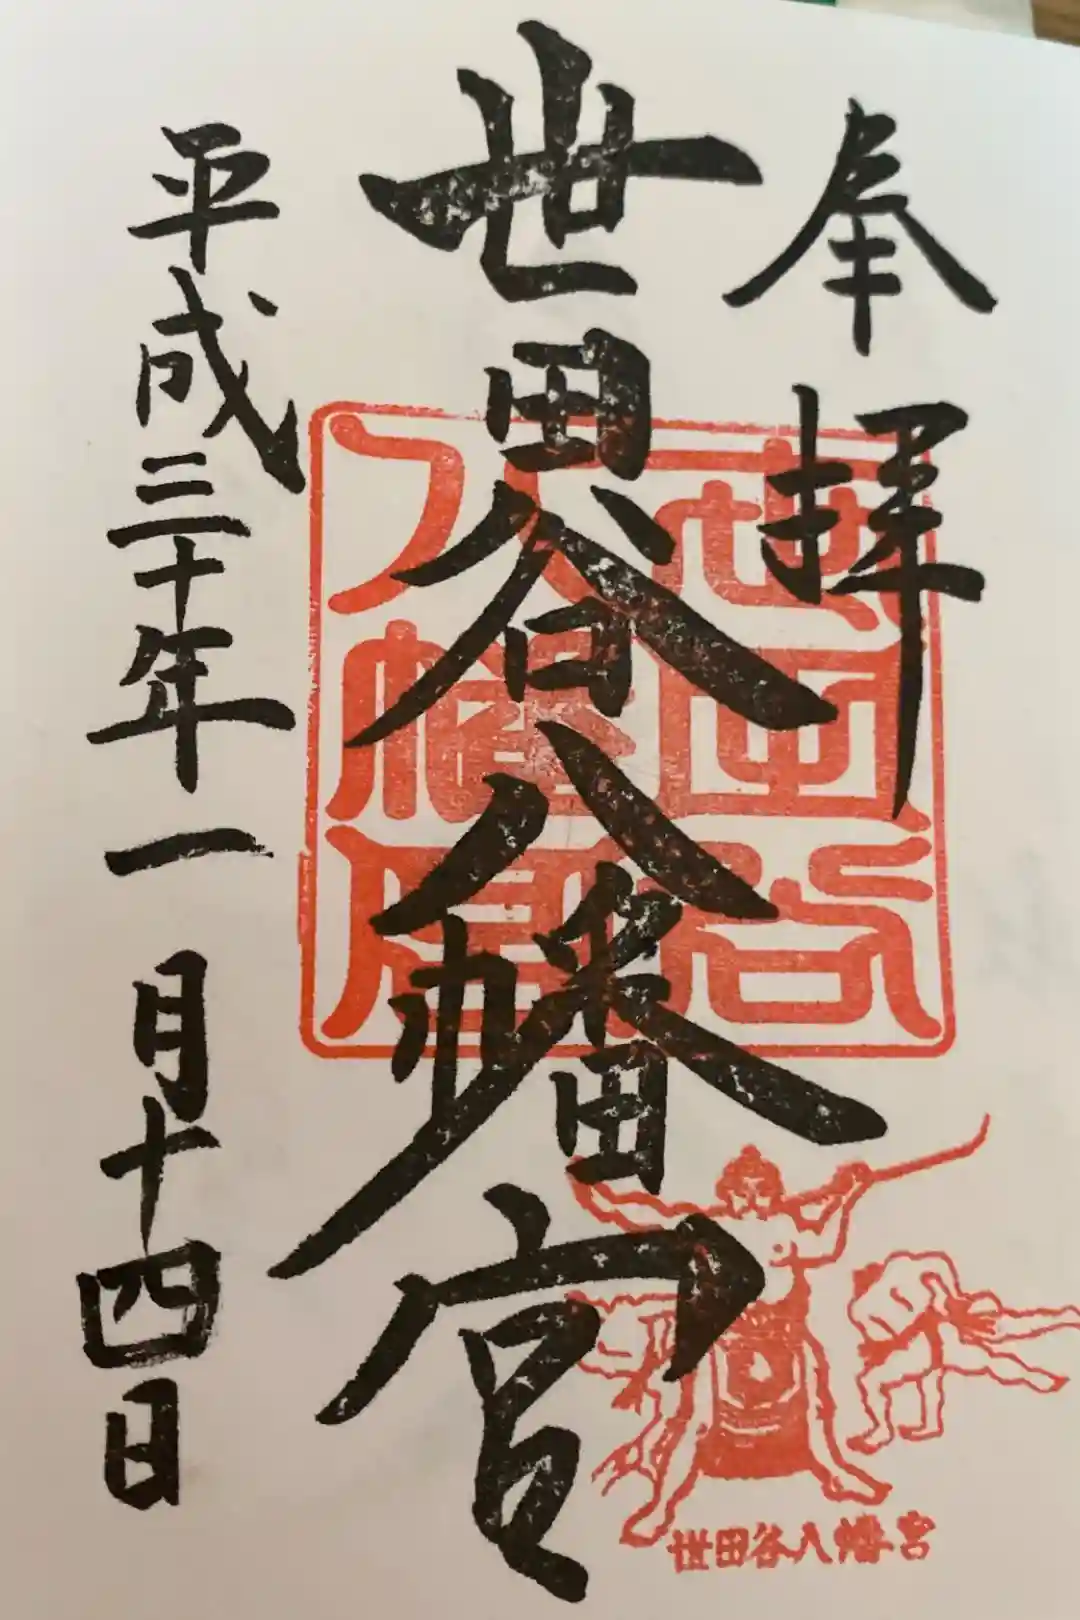 奉拝
世田谷八幡宮
世田谷
八幡宮
平成三十年一月十四日
世田谷八幡宮